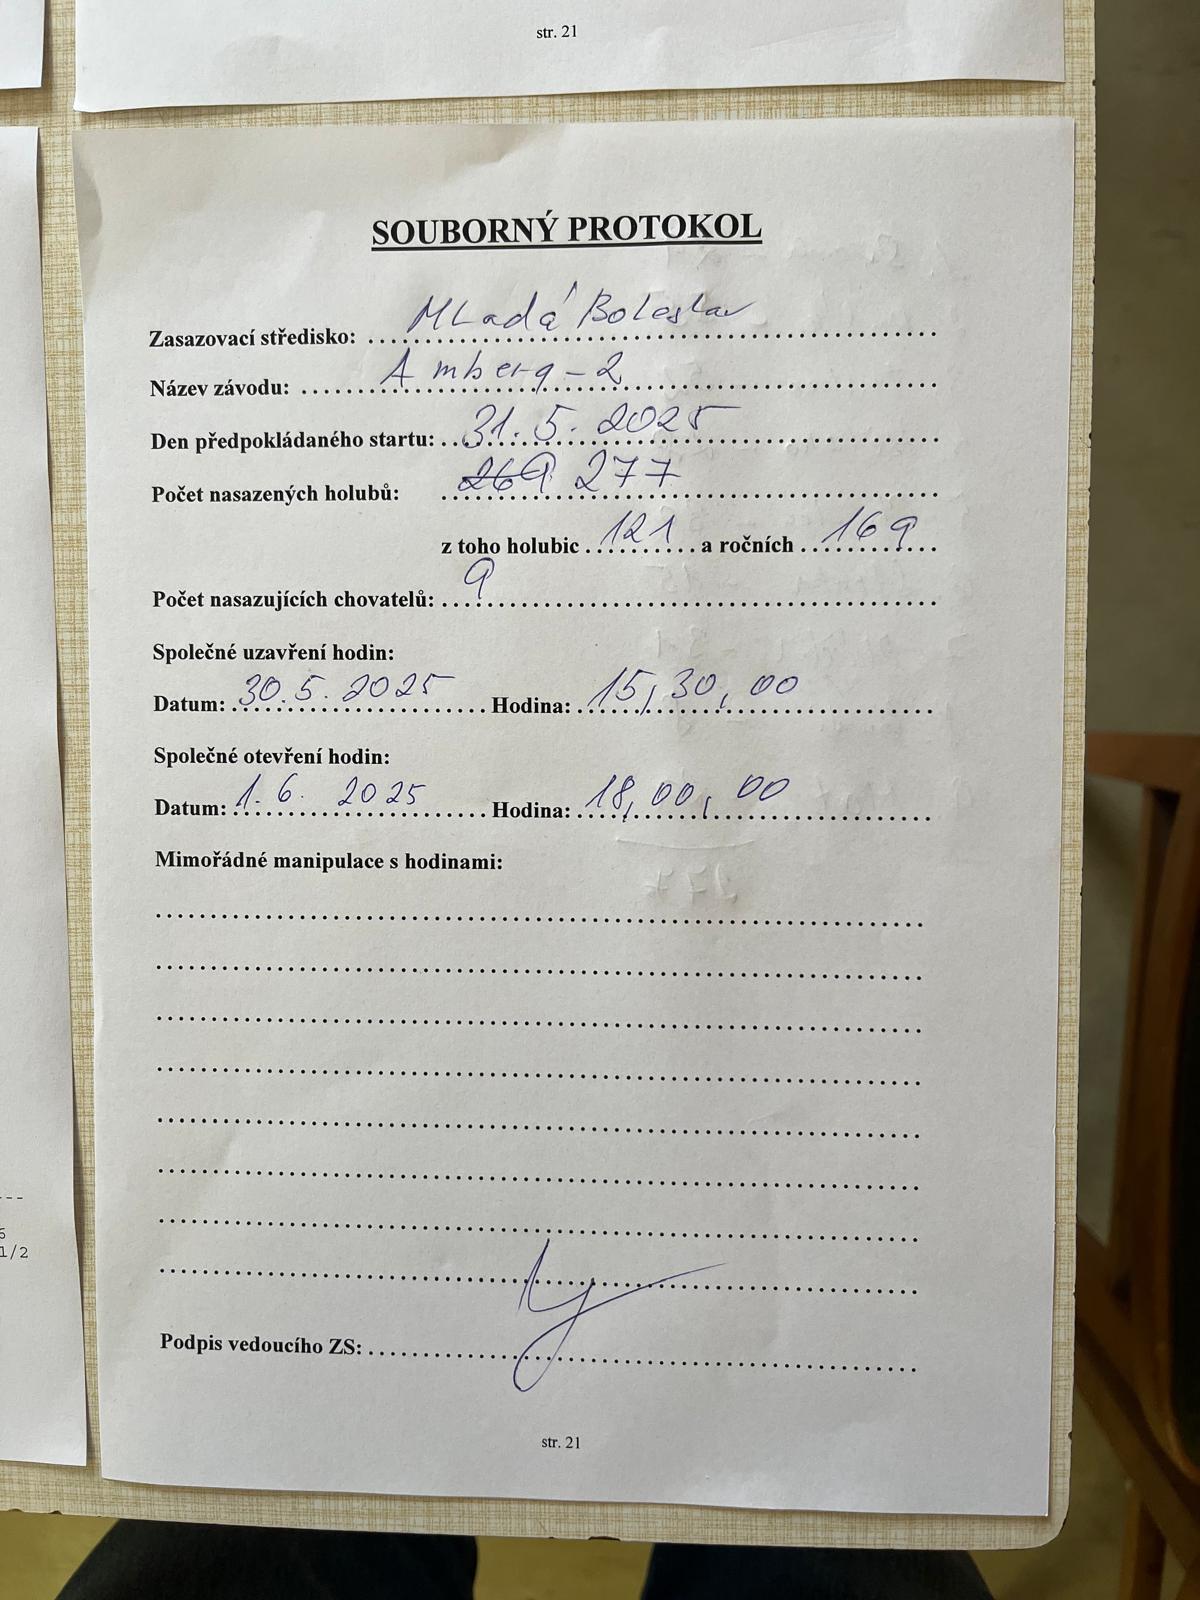 str. 21
SOUBORNÝ PROTOKOL
Zasazovací středisko: Mladá Boleslav
Název závodu: Amberg-2
Den předpokládaného startu: 31.5.2025
Počet nasazených holubů: 269 277
z toho holubic 121 a ročních 169
Počet nasazujících chovatelů: 9
Společné uzavření hodin:
Datum: 30.5.2025 Hodina: 15,30,00
Společné otevření hodin:
Datum: 1.6. 2025 Hodina: 18,00,00
Mimořádné manipulace s hodinami:
6
1/2
Podpis vedoucího ZS:
str. 21